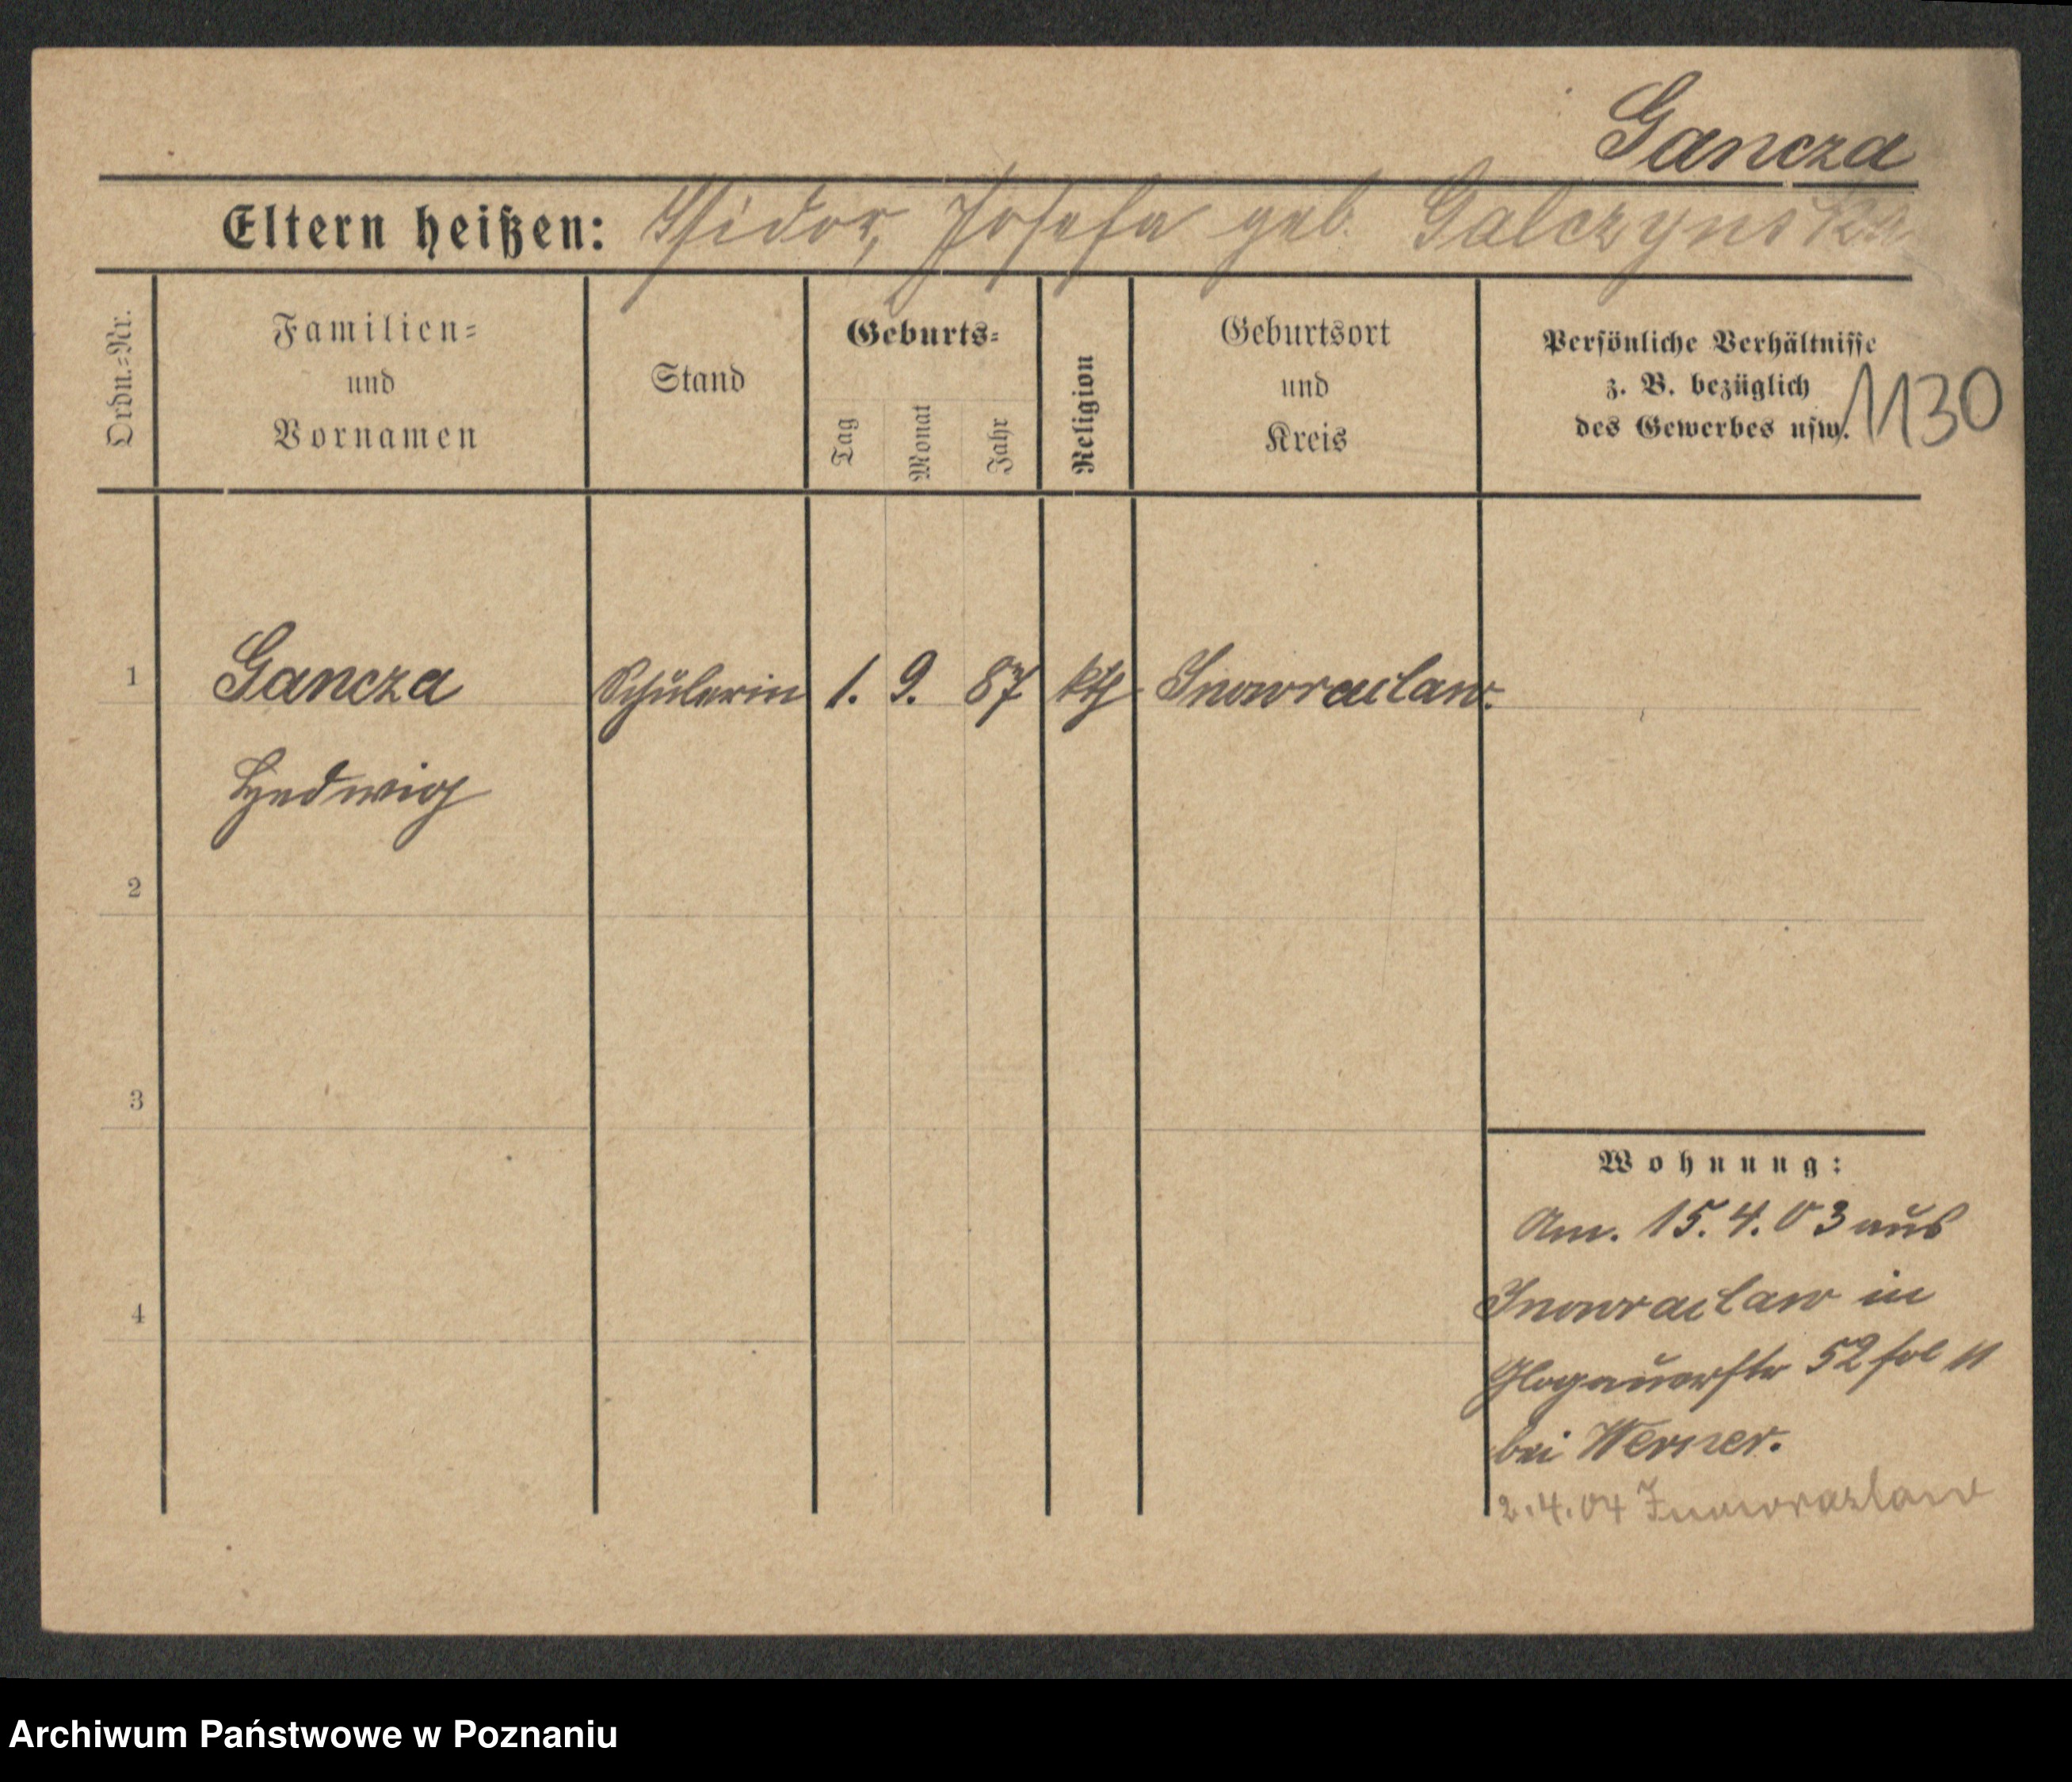 Gancza
Eltern heißen: Isidor, Josefa geb. Galczynska
Ordn.-Nr.
Familien-
und
Vornamen
Stand
Geburts-
Tag
Monat
Jahr
Religion
Geburtsort
und
Kreis
Persönliche Verhältnisse
z. B. bezüglich
des Gewerbes usw.
1130
1 Gancza Schülerin 1. 9. 87 kth Inowraclaw.
Hedwig
2
3
4
Wohnung:
Am. 15.4.03 aus
Inowraclaw in
Glogauerstr 52
bei Werner.
2.4.04 Inowrazlaw
Archiwum Państwowe w Poznaniu